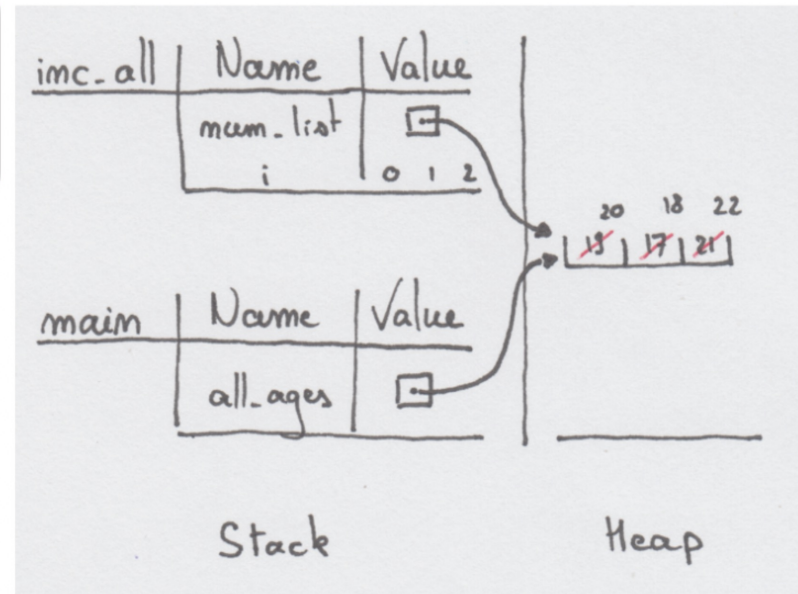 inc_all Name Value
num_list
i 0 1 2
20 18 22
19 17 21
main Name Value
all_ages
Stack Heap